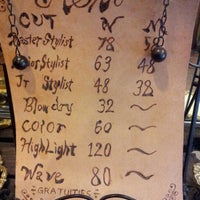 CUT
Master Stylist 78
Stylist 63 48
Jr Stylist 48 38
Blow dry 32 ~
Color 60 ~
HighLight 120 ~
Wave 80 ~
GRATUITIES